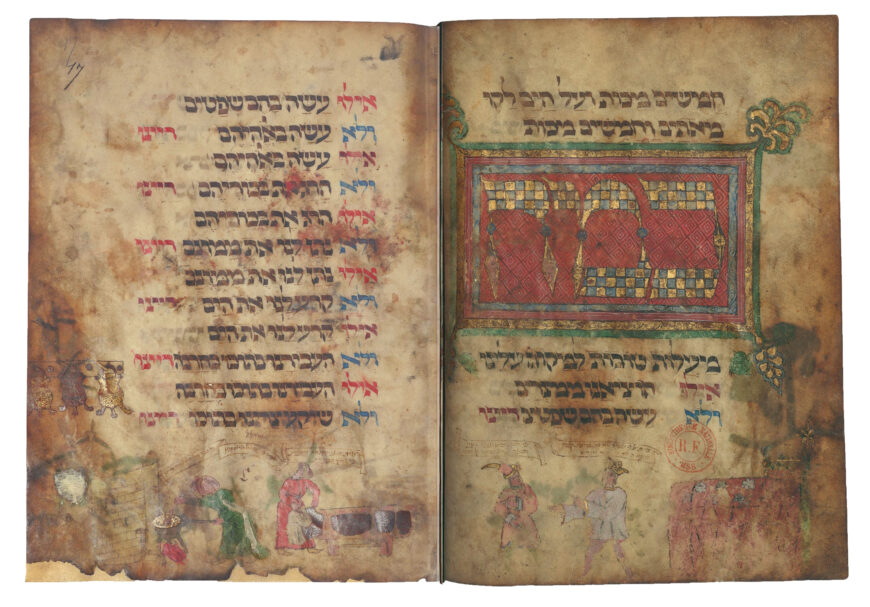 חמישים מכות ועל הים לקו
מאתים וחמישים מכות
כמה
מעלות טובות למקום עלינו
אילו הוציאנו ממצרים
ולא עשה בהם שפטים דיינו
R.F.
17
אילו עשה בהם שפטים
ולא עשה באלהיהם דיינו
אילו עשה באלהיהם
ולא הרג את בכוריהם דיינו
אילו הרג את בכוריהם
ולא נתן לנו את ממונם דיינו
אילו נתן לנו את ממונם
ולא קרע לנו את הים דיינו
אילו קרע לנו את הים
ולא העבירנו בתוכו בחרבה דיינו
אילו העבירנו בתוכו בחרבה
ולא שיקע צרינו בתוכו דיינו